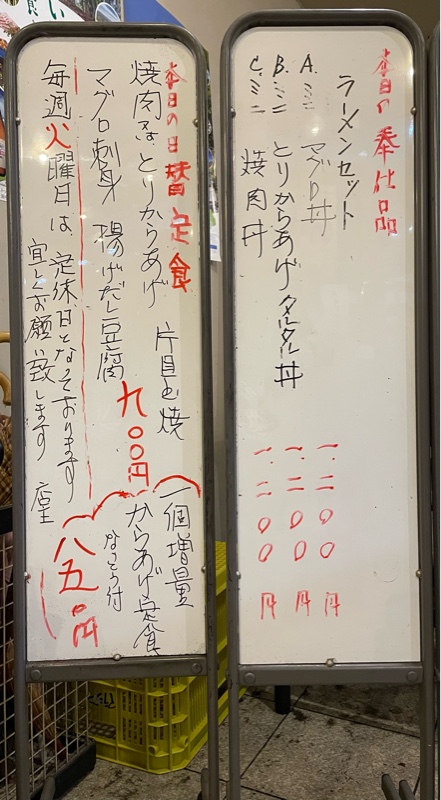 本日の奉仕品
ラーメンセット
A.ミニ マグロ丼 一.二〇〇円
B.ミニ とりからあげタルタル丼 一.二〇〇円
C.ミニ 焼肉丼 一.二〇〇円
本日の日替定食
焼肉 とりからあげ 片目玉焼
マグロ刺身 揚げだし豆腐 九〇〇円
一個増量
からあげ定食
なっとう付
八五〇円
毎週火曜日は、定休日となっております
宜しくお願い致します 店主